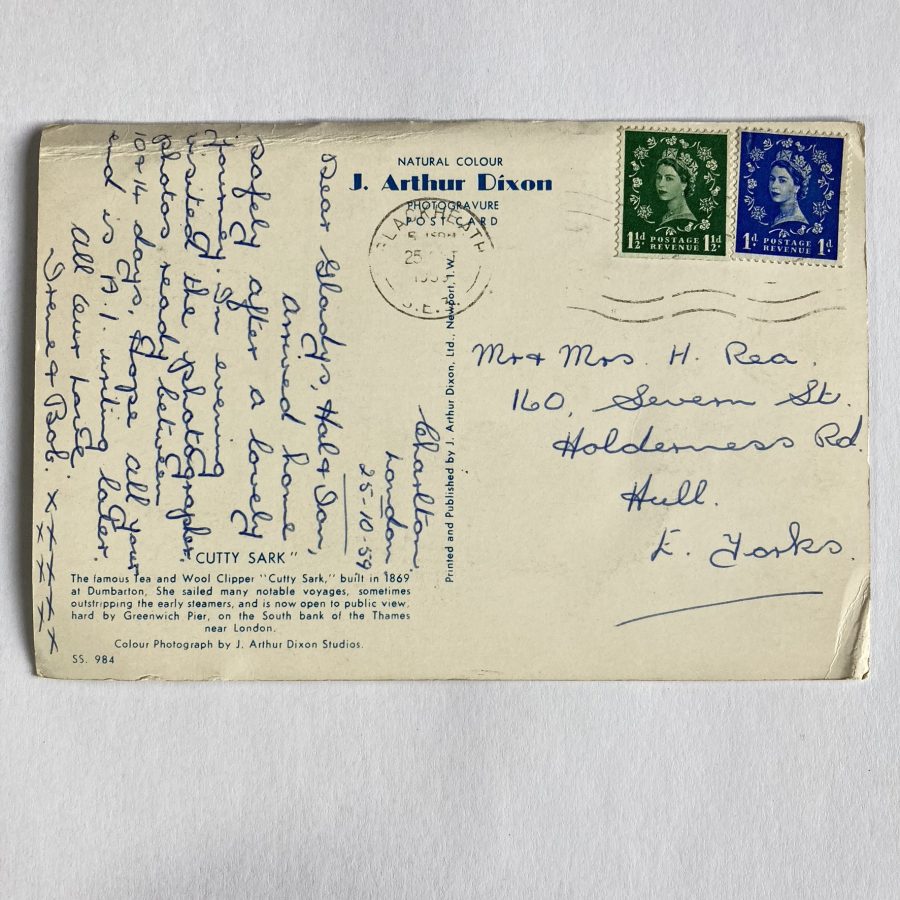 NATURAL COLOUR
J. Arthur Dixon
PHOTOGRAVURE
POST CARD
BLACKHEATH
25
S.E.3.
1½d POSTAGE REVENUE 1½d.
1d. POSTAGE REVENUE 1d.
Charlton
London
25-10-59
Dear Gladys, Hal & Ian,
Arrived home
safely after a lovely
journey. In evening
visited the photographer.
photos ready between
10 & 14 days. Hope all your
end is A.1. writing later.
All our love
Irene & Bob. x x x x x
x x x x
Mr & Mrs H. Rea.
160, Severn St.
Holderness Rd.
Hull.
E. Yorks.
Printed and Published by J. Arthur Dixon, Ltd., Newport, I.W.,
"CUTTY SARK"
The famous Tea and Wool Clipper "Cutty Sark," built in 1869
at Dumbarton. She sailed many notable voyages, sometimes
outstripping the early steamers, and is now open to public view,
hard by Greenwich Pier, on the South bank of the Thames
near London.
Colour Photograph by J. Arthur Dixon Studios.
SS. 984